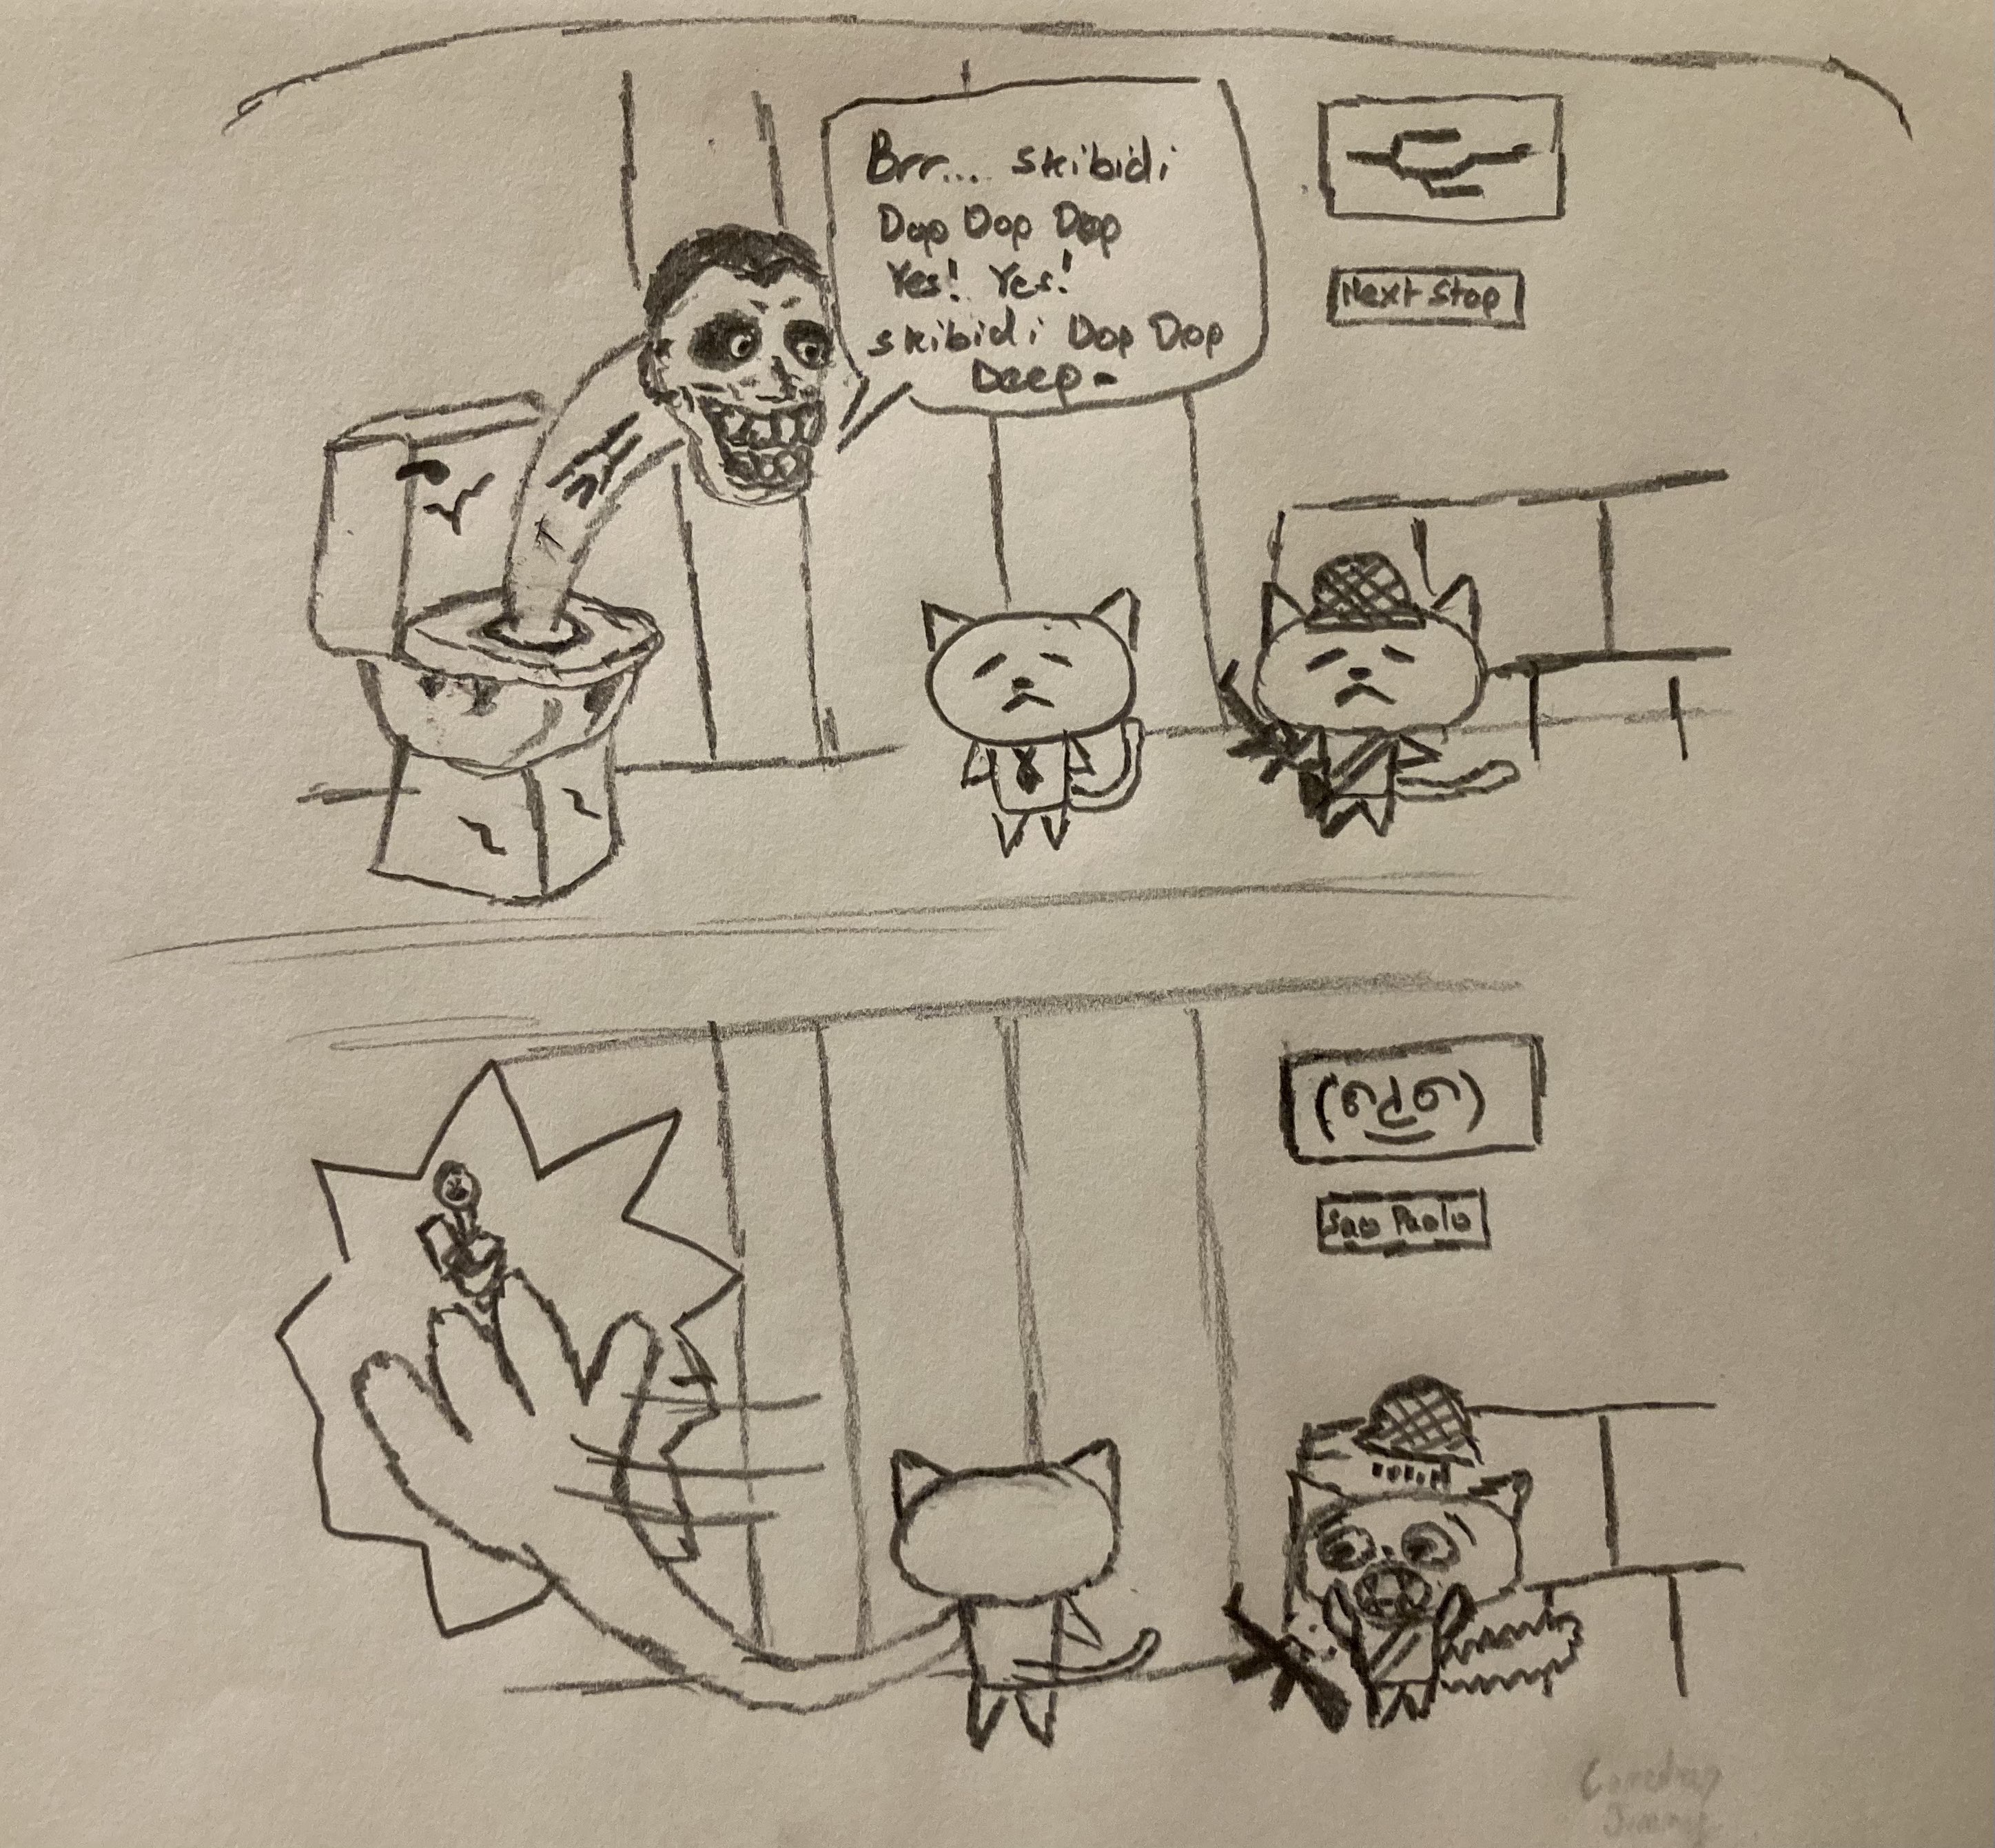 Brr... skibidi
Dop Dop Dop
Yes! Yes!
skibidi Dop Dop
Deep-
Next Stop
Sao Paolo